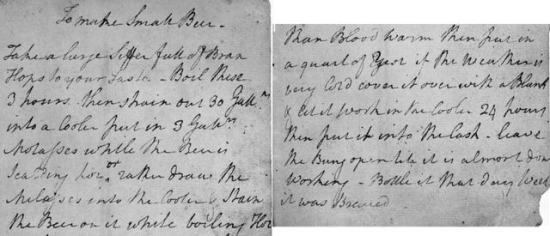 To make Small Beer -
Take a large Siffer full of Bran
Hops to your Taste - Boil these
3 hours. then strain out 30 Gall.ns
into a Cooler put in 3 Gall.ns
Molasses while the Beer is
Scalding hot or rather draw the
Molasses into the Cooler & Strain
the Beer on it while boiling Hot
than Blood warm then put in
a quart of Yest if the Weather is
very Cold cover it over with a Blank
& let it work in the Cooler 24 hours
then put it into the Cask - leave
the Bung open till it is almost done
working - Bottle it that day Week
it was Brewed